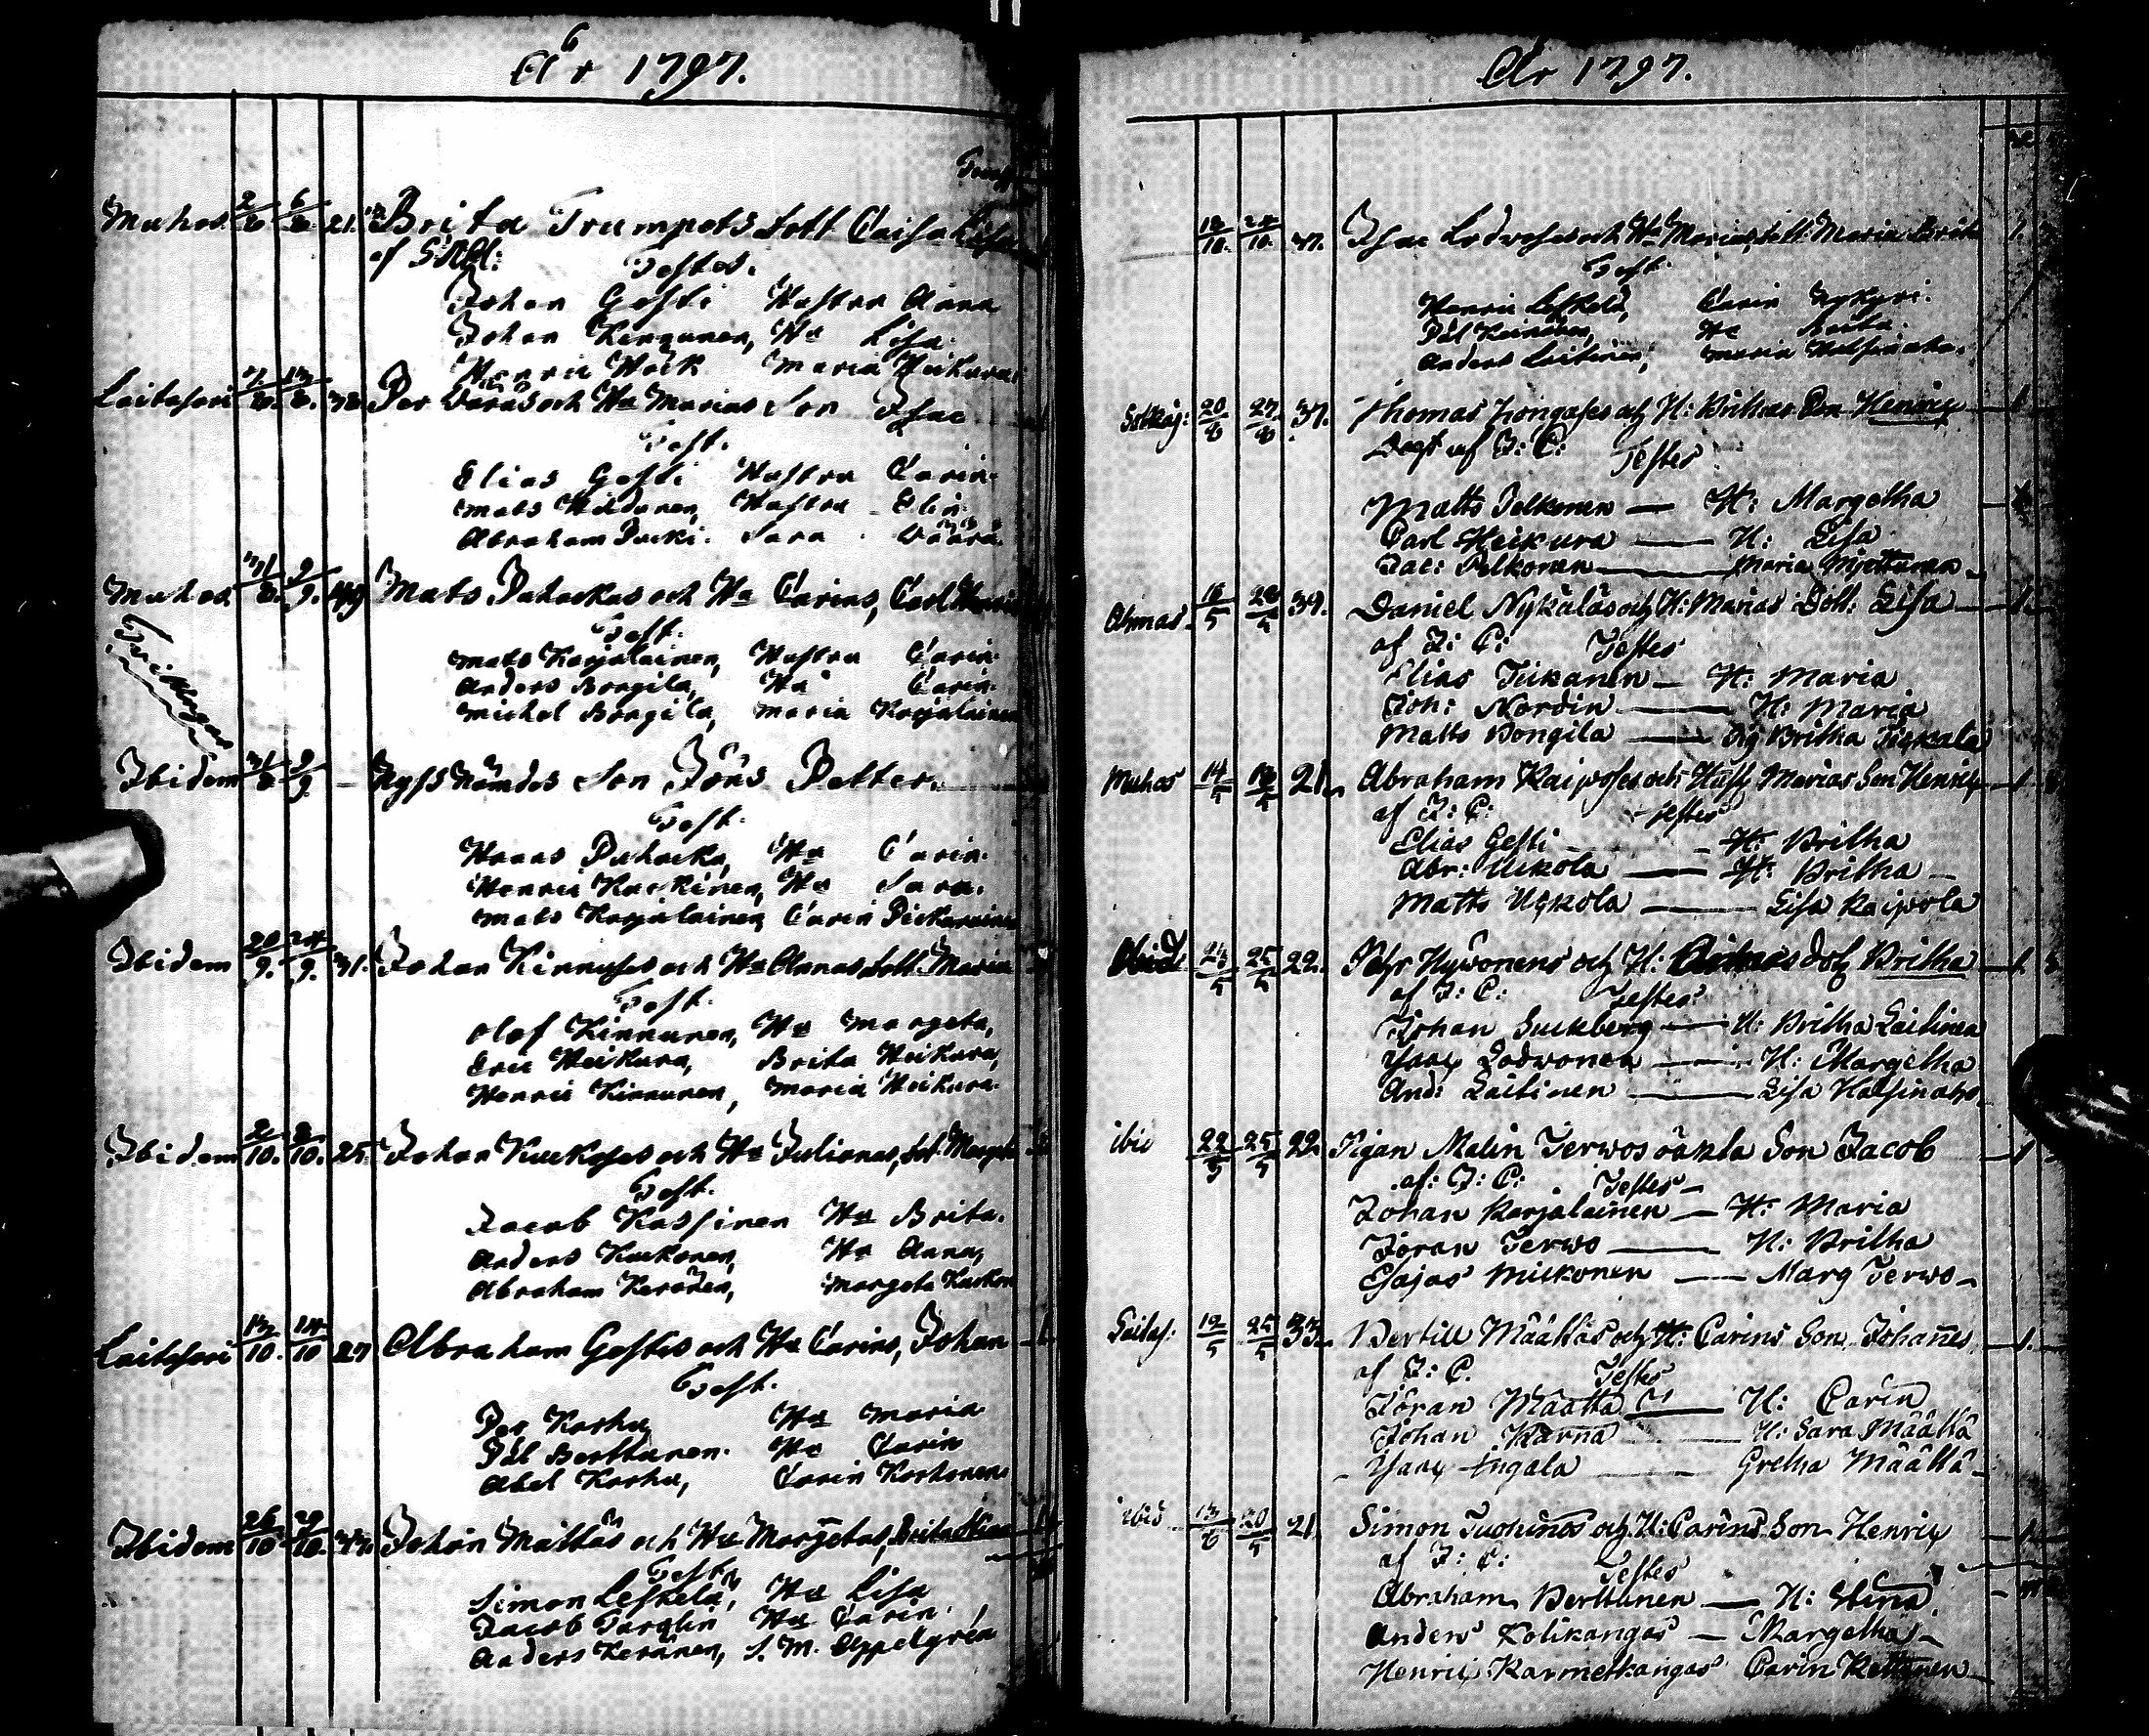 År 1797.
Muhos 2/8 6/8 21. Brita Trumpets dott Caisa Lisa
af S.Abl:
Testes.
Johan Gesti Hustru Anna
Johan Kengunen, Hu Lisa
Henric Höök Maria Heikura
Laitasari 38. Per Väräs och Hu Marias Son Isac
Test.
Elias Gesti Hustru Carin
Mats Hiidonen, Hustru Elin
Abraham Pucki. Sara Väärä
Muhos 31/8. 3/9. Mats Puhackas och Hu Carins, Carl Henric
Test.
Mats Karjalainen, Hustru Carin
Anders Bongila, Hu Carin
Michel Bongila, Maria Karjalainen
Ibidem 31/8 3/9 — Son Jöns Petter.
Test.
Hans Puhacka, Hu Carin
Henric Karkinen, Hu Sara.
Mats Karjalainen Carin
Ibidem 20/9. 24/9. 31. Johan Kinnuses och Hu Annas dott. Maria
Test.
Olof Kinnunen, Hu Margeta,
Eric Heikura, Brita Heikura,
Henric Kinnunen, Maria Heikura.
Ibidem 2/10. 8/10. 25. Johan Kuckoses och Hu Julianas, dot. Margeta
Test.
Jacob Kassinen Hu Brita.
Anders Kuckonen, Hu Anna,
Abraham Keränen, Margeta Kuckon
Laitasari 13/10. 14/10 27 Abraham Gestis och Hu Carins, Johan
Test.
Per Korhu, Hu Maria
Pål Berttunen. Hu Carin
Abel Korhu, Carin Korhonen
Ibidem 26/10 29/10. Johan Mattas och Hu Margetas, Brita Stina
Test.
Simon Leskelä, Hu Lisa
Jacob Hu Carin.
Anders Keränen, S. M. Appelgrén
År 1797.
18/10. 24/10. 37. Isac Lodwoses och Hu Marias, dott: Maria Brita 1.
Test.
Henric Leskelä, Carin Nykyri.
Pål Keinänen, Hu Brita.
Anders Laitinen, Maria Halsinaho.
Sotkaj: 20/8 27/8 37. Thomas Pongases och H: Brithas Son Henric 1
Dopt af J: C: Testes
Matts Pelkonen — H: Margetha
Carl Heikura — H: Lisa
Jac: Pelkonen — Maria Myetturen
Ahmas 18/5 28/5 39. Daniel Nykäläs och H: Marias Dott: Lisa 1.
af J: C: Testes
Elias Tiikanen — H: Maria
Joh: Nordin — H: Maria
Matts Bongila — Pig Britha Pigkala
Muhos 14/5 18/5 21. Abraham Kaiposes och Hust Marias Son Henric 1
af J: C: Testes
Elias Gesti — H: Britha
Abr: Uckola — H: Britha
Matts Ugkola — Lisa Kaipola
Ibid 24/5 25/5 22. Petr Hywönens och H: dott Britha 1
af J: C: Testes
Johan Suckberg — H: Britha Laitinen
Isac Lodwonen — H: Margetha
And: Laitinen — Lisa Halsinaho
ibid 22/5 25/5 22. Pigan Malin Terwos oäkta Son Jacob 1
af: J: C: Testes
Johan Karjalainen — H: Maria
Jöran Terwo — H: Britha
Esajas Mickonen — Marg Terwo
Laitas: 19/5 25/5 33. Bertill Määttäs och H: Carins Son Johannes 1.
af J: C. Testes
Jöran Määttä — H: Carin
Johan Kärnä — H: Sara Määttä
Isac Ingala — Gretha Määttä
ibid 13/8 20/5 21 Simon Tuohinos och H: Carins Son Henric 1
af J: C: Testes
Abraham Berttunen — H: Stina
Anders Kolikangas — Margetha
Henric Karmetkangas Carin Kettunen